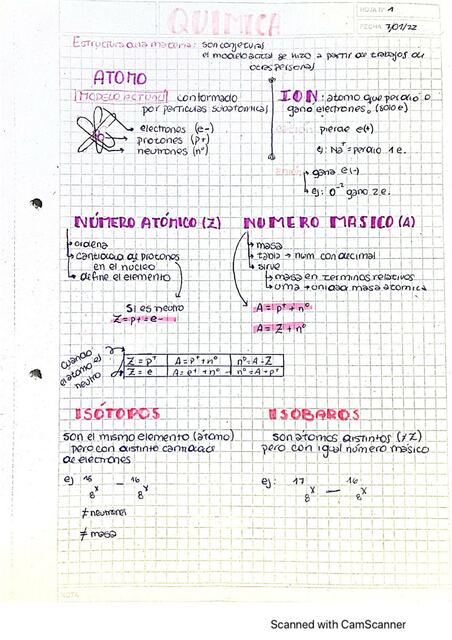 HOJA N° 1
QUIMICA
FECHA 7/01/22
Estructura de la materia: son conjeturas
el modelo actual se hizo a partir de trabajos de
otras personas
ATOMO
MODELO ACTUAL conformado
por partículas subatomicas
electrones (e-)
protones (p+)
neutrones (n°)
ION: atomo que perdio o
gano electrones. (solo e)
cation pierde e(+)
ej: Na+ = perdio 1e.
anion gana e(-)
ej: O-2 gano 2e.
NÚMERO ATÓMICO (Z)
ordena
cantidad de protones
en el nucleo
define el elemento
Si es neutro
Z = p+ = e-
NUMERO MASICO (A)
masa
tabla → num con decimal
sirve
masa en terminos relativos
uma → unidad masa atomica
A = p+ + n°
A = Z + n°
cuando
el atomo es
neutro
Z = p+ A = p+ + n° n° = A - Z
Z = e A = e + n° n° = A - p+
ISÓTOPOS
son el mismo elemento (átomo)
pero con distinto cantidad
de electrones
ej 18 8 X - 16 8 X
≠ neutrones
≠ masa
ISOBAROS
son atomos distintos (≠ Z)
pero con igual número masico
ej: 17 8 X — 16 8 X
NOTA
Scanned with CamScanner